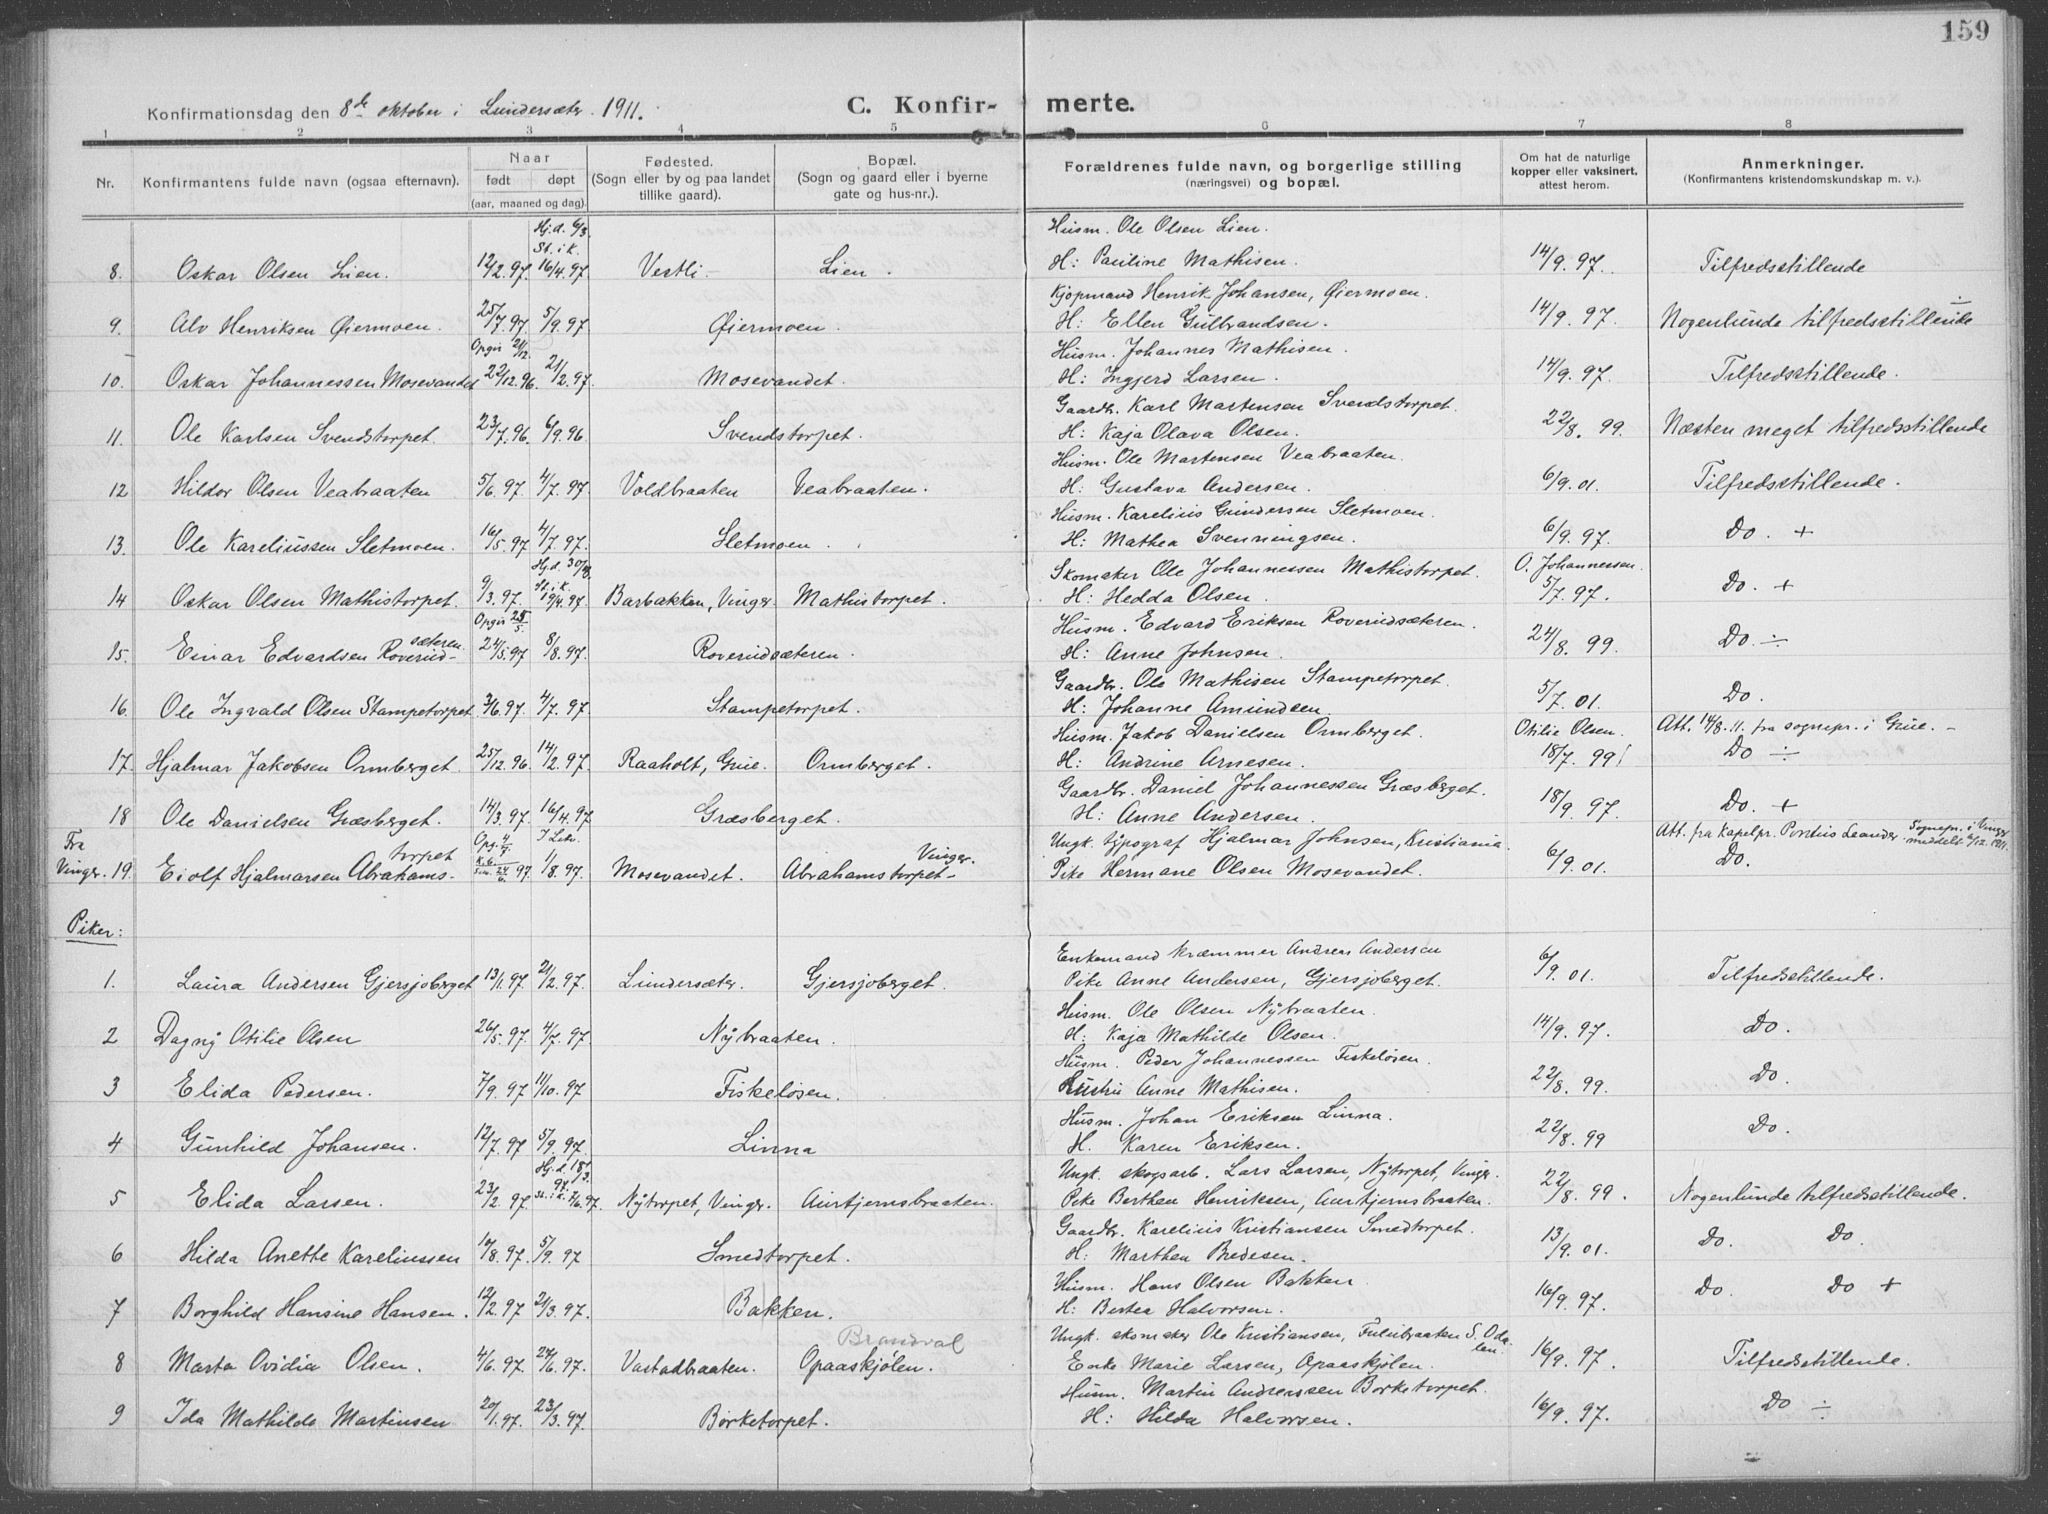 159
Konfirmationsdag den 8de oktober i Lundersæter 1911.
C. Konfir- merte.
1 2 3 4 5 6 7 8
Nr.
Konfirmantens fulde navn (ogsaa efternavn).
Naar
født døpt
(aar, maaned og dag).
Fødested.
(Sogn eller by og paa landet
tillike gaard).
Bopæl.
(Sogn og gaard eller i byerne
gate og hus-nr.).
Forældrenes fulde navn, og borgerlige stilling
(næringsvei) og bopæl.
Om hat de naturlige
kopper eller vaksinert,
attest herom.
Anmerkninger.
(Konfirmantens kristendomskundskap m. v.).
Hj.d. 6/3 Husm. Ole Olsen Lien.
St. i k.
8. Oskar Olsen Lien. 12/2.97. 16/4.97. Vestli. Lien. H: Pauline Mathisen. 14/9.97. Tilfredsstillende
Kjøpmand Henrik Johansen, Øiermoen.
9. Alv Henriksen Øiermoen. 25/7.97. 5/9.97 Øiermoen. H: Ellen Gulbrandsen. 14/9.97. Nogenlunde tilfredsstillende ÷
Opgis 21/12. Husm. Johannes Mathisen.
10. Oskar Johannessen Mosevandet 22/12.96. 21/2.97. Mosevandet. H: Ingjerd Larsen. 14/9.97. Tilfredsstillende.
Gaardbr. Karl Martensen Svendstorpet.
11. Ole Karlsen Svendstorpet. 23/7.96. 6/9.96 Svendstorpet. H: Kaja Olava Olsen. 22/8.99. Næsten meget tilfredsstillende
Husm. Ole Martensen Veabraaten.
12 Hildor Olsen Veabraaten 5/6.97. 4/7.97. Voldbraaten Veabraaten. H: Gustava Andersen. 6/9.01. Tilfredsstillende.
Husm. Karelius Gundersen Sletmoen.
13. Ole Kareliussen Sletmoen. 16/5.97 4/7.97. Sletmoen. H: Mathea Svenningsen. 6/9.97. Do. +
Hj.d. 30/3. Skomaker Ole Johannessen Mathistorpet. O. Johannessen.
St. i k.
14 Oskar Olsen Mathistorpet. 9/3.97. 19/4.97. Barbakken, Vinger. Mathistorpet. H: Hedda Olsen. 5/7.97. Do. +
Opgis 25/5. Husm. Edvard Eriksen Roverudsæteren.
15. Einar Edvardsen Roverud-sæteren. 24/5.97 8/8.97. Roverudsæteren. H: Anne Johnsen. 24/8.99. Do. ÷
Gaardbr. Ole Mathisen Stampetorpet.
16. Ole Ingvald Olsen Stampetorpet 3/6.97. 4/7.97. Stampetorpet. H: Johanne Amundsen. 5/7.01. Do.
Husm. Jakob Danielsen Ormberget. Otilie Olsen. Att. 14/8.11. fra sognepr. i Grue.
17. Hjalmar Jakobsen Ormberget. 25/12.96. 14/2.97. Raaholt, Grue. Ormberget. H: Andrine Arnesen. 18/7.99! Do ÷
Gaardbr. Daniel Johannessen Græsberget.
18 Ole Danielsen Græsberget. 14/3.97. 16/4.97. Græsberget. H: Anne Andersen. 18/9.97. Do. +
Fra Opg. 4/7 Ungk. typograf Hjalmar Johnsen, Kristiania. Att. fra kapelpr. Pontus Leander. Sognepr. i Vinger meddelt 6/12.1911.
Vinger. 19. Eiolf Hjalmarsen Abrahams-torpet 97. 1/8.97. Mosevandet. Abrahamstorpet Vinger. Pike Hermane Olsen Mosevandet. 6/9.01. Do.
Piker:
Enkemand kræmmer Andreas Andersen
1. Laura Andersen Gjersjøberget 13/1.97 21/2.97. Lundersæter. Gjersjøberget. Pike Anne Andersen, Gjersjøberget. 6/9.01. Tilfredsstillende.
Husm. Ole Olsen Nybraaten.
2 Dagny Otilie Olsen 26/5.97. 4/7.97. Nybraaten. H. Kaja Mathilde Olsen. 14/9.97. Do.
Husm. Peder Johannessen Fiskeløsen.
3 Elida Pedersen. 7/9.97 11/10.97 Fiskeløsen. Hustru Anne Mathisen. 22/8.99. Do.
Husm. Johan Eriksen Linna.
4 Gunhild Johansen. 12/7.97 5/9.97. Linna H. Karen Eriksen. 22/8.99 Do.
Hj.d. 18/3.97. Ungk. skogsarb. Lars Larsen, Nytorpet, Vinger.
5 Elida Larsen. 23/2.97 St. i k. 7/6.97. Nytorpet, Vinger. Aurtjernsbraaten. Pike Berthea Henriksen, Aurtjernsbraaten. 22/8.99. Nogenlunde tilfredsstillende.
Gaardbr. Karelius Kristiansen Smedtorpet.
6 Hilda Anette Kareliussen 10/8.97. 5/9.97 Smedtorpet. H: Marthea Bredesen. 13/9.01. Do. Do.
Husm. Hans Olsen Bakken
7 Borghild Hansine Hansen. 12/2.97 21/3.97. Bakken. H: Bertea Halvorsen. 16/9.97. Do. Do +
Brandval Ungk. skomaker Ole Kristiansen, Fulubraaten S. Odalen.
8 Marta Ovidia Olsen. 4/6.97. 24/6.97. Vastadbraaten. Opaaskjølen. Enke Marie Larsen, Opaaskjølen. 16/9.97. Tilfredsstillende.
Husm. Martin Andreassen Børketorpet.
9 Ida Mathilde Martinsen 20/1.97. 23/3.97. Børketorpet. H: Hilda Halvorsen. 16/9.97. Do ÷